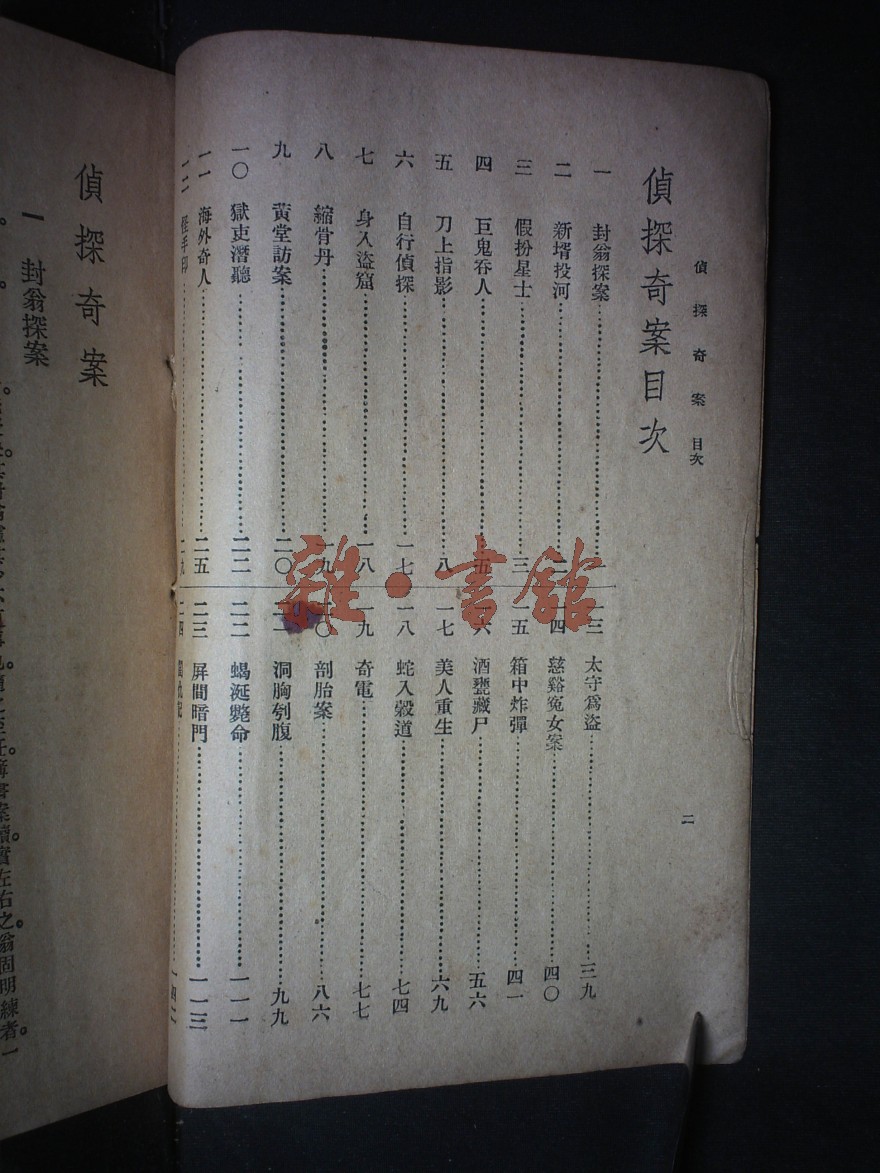 偵探奇案 目次
二
偵探奇案目次
一 封翁探案 一
二 新壻投河 二
三 假扮星士 三
四 巨鬼吞人 五
五 刀上指影 八
六 自行偵探 一七
七 身入盜窟 一八
八 縮骨丹 一九
九 黃堂訪案 二〇
一〇 獄吏潛聽 二二
一一 海外奇人 二五
一二 怪手印 二九
一三 太守爲盜 三九
一四 慈谿冤女案 四〇
一五 箱中炸彈 四一
一六 酒甕藏尸 五六
一七 美人重生 六九
一八 蛇入穀道 七四
一九 奇電 七七
二〇 剖胎案 八六
二一 洞胸刳腹 九九
二二 蝎涎斃命 一一一
二三 屏間暗門 一一三
二四 一四二
偵探奇案
一 封翁探案
雜·書館